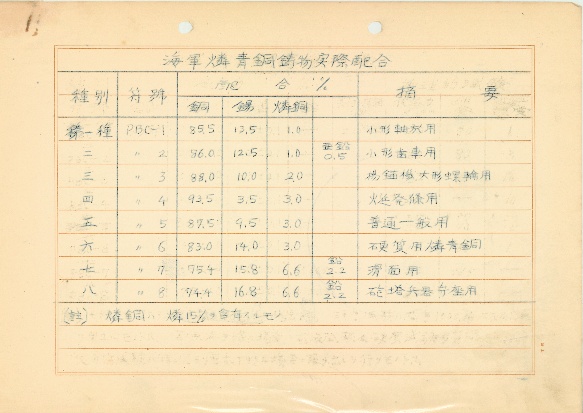 海軍燐青銅鋳物実際配合
種別 符號 配合 % 摘要
銅 錫 燐銅
第一種 PBC-1 85.5 13.5 1.0 小形軸承用
二 〃 2 86.0 12.5 1.0 亜鉛 0.5 小形歯車用
三 〃 3 88.0 10.0 2.0 揚錨機大形螺輪用
四 〃 4 93.5 3.5 3.0 發條用
五 〃 5 87.5 9.5 3.0 普通一般用
六 〃 6 83.0 14.0 3.0 硬質用燐青銅
七 〃 7 75.4 15.8 6.6 鉛 2.2 滑面用
八 〃 8 74.4 16.8 6.6 鉛 2.2 砲塔兵器
(註) 燐銅ハ燐15%ヲ含有スルモノ